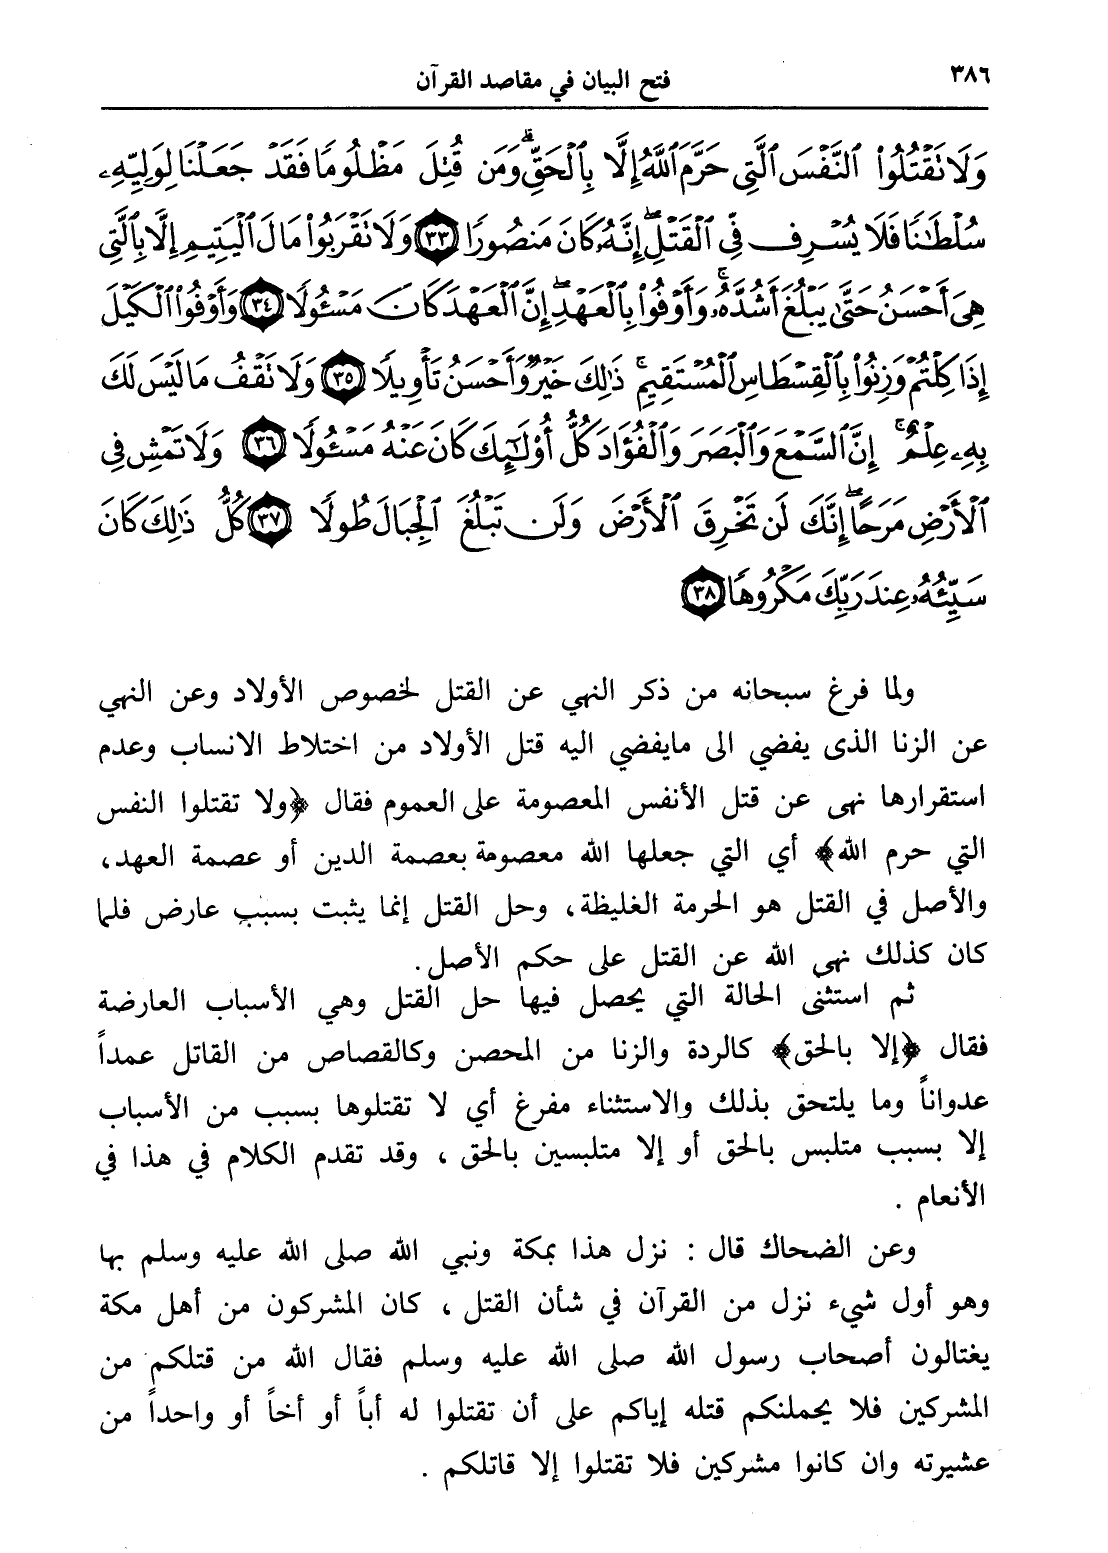 ٣٨٦
فتح البيان في مقاصد القرآن
وَلَا تَقْتُلُوا۟ ٱلنَّفْسَ ٱلَّتِى حَرَّمَ ٱللَّهُ إِلَّا بِٱلْحَقِّ ۗ وَمَن قُتِلَ مَظْلُومًا فَقَدْ جَعَلْنَا لِوَلِيِّهِۦ
سُلْطَٰنًا فَلَا يُسْرِف فِّى ٱلْقَتْلِ ۖ إِنَّهُۥ كَانَ مَنصُورًا ٣٣ وَلَا تَقْرَبُوا۟ مَالَ ٱلْيَتِيمِ إِلَّا بِٱلَّتِى
هِىَ أَحْسَنُ حَتَّىٰ يَبْلُغَ أَشُدَّهُۥ ۚ وَأَوْفُوا۟ بِٱلْعَهْدِ ۖ إِنَّ ٱلْعَهْدَ كَانَ مَسْـُٔولًا ٣٤ وَأَوْفُوا۟ ٱلْكَيْلَ
إِذَا كِلْتُمْ وَزِنُوا۟ بِٱلْقِسْطَاسِ ٱلْمُسْتَقِيمِ ۚ ذَٰلِكَ خَيْرٌ وَأَحْسَنُ تَأْوِيلًا ٣٥ وَلَا تَقْفُ مَا لَيْسَ لَكَ
بِهِۦ عِلْمٌ ۚ إِنَّ ٱلسَّمْعَ وَٱلْبَصَرَ وَٱلْفُؤَادَ كُلُّ أُو۟لَٰٓئِكَ كَانَ عَنْهُ مَسْـُٔولًا ٣٦ وَلَا تَمْشِ فِى
ٱلْأَرْضِ مَرَحًا ۖ إِنَّكَ لَن تَخْرِقَ ٱلْأَرْضَ وَلَن تَبْلُغَ ٱلْجِبَالَ طُولًا ٣٧ كُلُّ ذَٰلِكَ كَانَ
سَيِّئُهُۥ عِندَ رَبِّكَ مَكْرُوهًا ٣٨
ولما فرغ سبحانه من ذكر النهي عن القتل لخصوص الأولاد وعن النهي
عن الزنا الذى يفضي الى مايفضي اليه قتل الأولاد من اختلاط الانساب وعدم
استقرارها نهى عن قتل الأنفس المعصومة على العموم فقال ﴿ولا تقتلوا النفس
التي حرم الله﴾ أي التي جعلها الله معصومة بعصمة الدين أو عصمة العهد،
والأصل في القتل هو الحرمة الغليظة، وحل القتل إنما يثبت بسبب عارض فلما
كان كذلك نهى الله عن القتل على حكم الأصل.
ثم استثنى الحالة التي يحصل فيها حل القتل وهي الأسباب العارضة
فقال ﴿إلا بالحق﴾ كالردة والزنا من المحصن وكالقصاص من القاتل عمداً
عدواناً وما يلتحق بذلك والاستثناء مفرغ أي لا تقتلوها بسبب من الأسباب
إلا بسبب متلبس بالحق أو إلا متلبسين بالحق ، وقد تقدم الكلام في هذا في
الأنعام .
وعن الضحاك قال : نزل هذا بمكة ونبي الله صلى الله عليه وسلم بها
وهو أول شيء نزل من القرآن في شأن القتل ، كان المشركون من أهل مكة
يغتالون أصحاب رسول الله صلى الله عليه وسلم فقال الله من قتلكم من
المشركين فلا يحملنكم قتله إياكم على أن تقتلوا له أباً أو أخاً أو واحداً من
عشيرته وان كانوا مشركين فلا تقتلوا إلا قاتلكم .